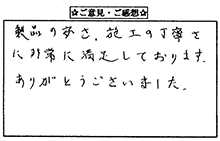 ☆ご意見・ご感想☆
製品の良さ、施工の丁寧さ
に非常に満足しております。
ありがとうございました。